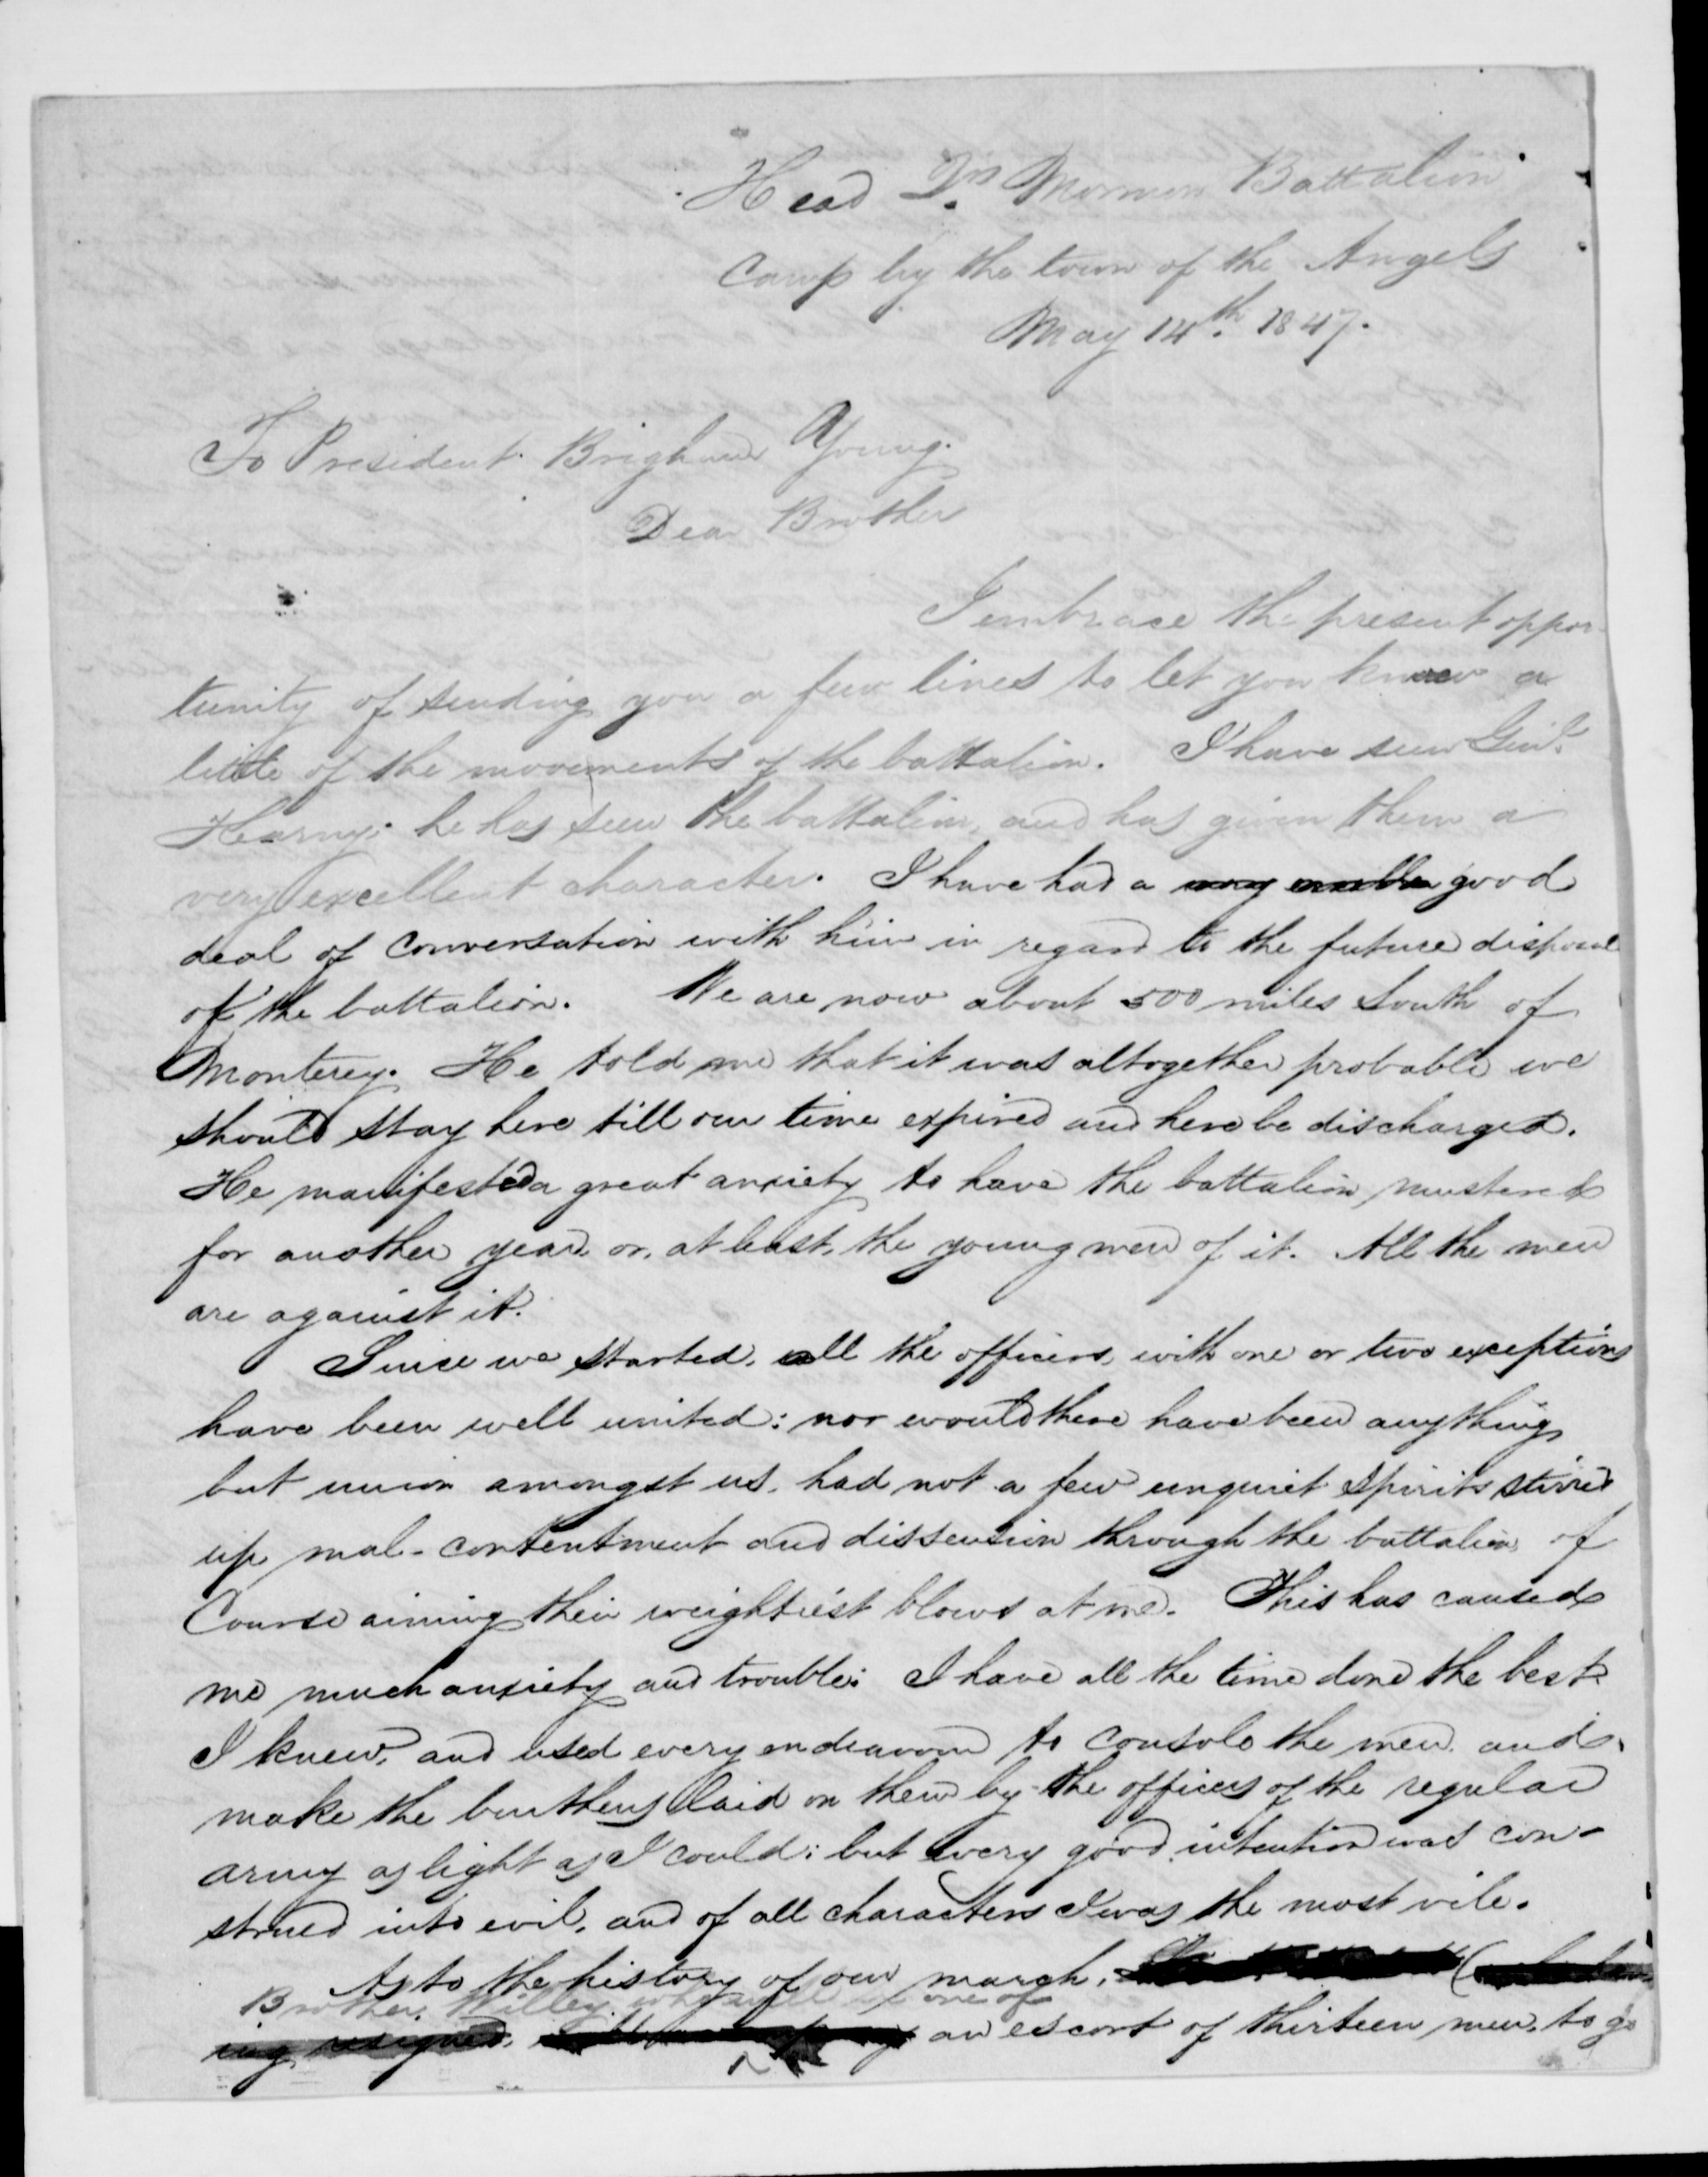 Head Qrs. Mormon Battalion
Camp by the town of the Angels
May 14th. 1847.
To President Brigham Young.
Dear Brother
I embrace the present oppor-
tunity of sending you a few lines to let you know a
little of the movements of the battalion. I have seen Genl.
Kearny; he has seen the battalion, and has given them a
very excellent character. I have had a good
deal of conversation with him in regard to the future disposal
of the battalion. We are now about 500 miles South of
Monterey. He told me that it was altogether probable we
should stay here till our time expired and here be discharged.
He manifested a great anxiety to have the battalion mustered
for another year, or, at least, the young men of it. All the men
are against it.
Since we started, all the officers, with one or two exceptions
have been well united: nor would there have been anything
but union amongst us, had not a few unquiet spirits stirred
up mal-contentment and dissension through the battalion, of
Course aiming their weightiest blows at me. This has caused
me much anxiety and trouble: I have all the time done the best
I knew, and used every endeavour to console the men, and
make the burthens laid on them by the officers of the regular
army as light as I could: but every good intention was con-
strued into evil, and of all characters I was the most vile.
As to the history of our march,
Brother Willey, who will one of
ing resigned, an escort of thirteen men, to go